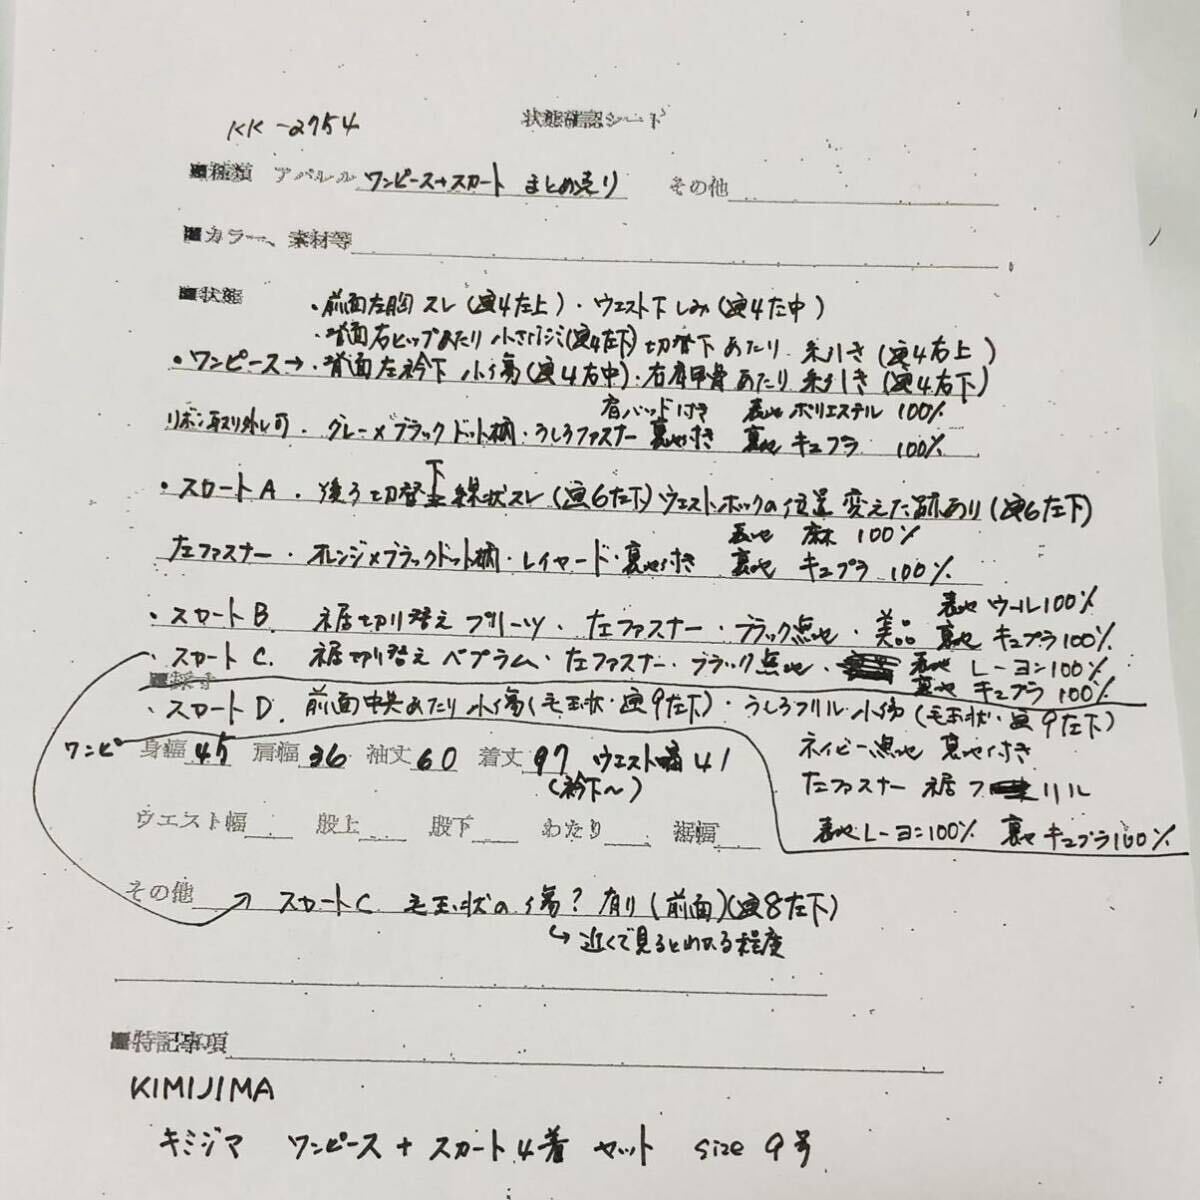 KK-2754
状態確認シート
■種類 アパレル ワンピース+スカート まとめ売り その他
■カラー、素材等
■状態
・前面左胸 スレ(画4左上)・ウエスト下 しみ(画4左中)
・背面右ヒップあたり 小さい(画4左下) 切替下 あたり 糸引き (画4右上)
・ワンピース→・背面左衿下 小傷(画4右中)・右肩甲骨あたり 糸引き (画4右下)
肩パッド付き 表地 ポリエステル 100%
リボン取り外し可 ・グレー×ブラック ドット柄・うしろファスナー 裏地付き 裏地 キュプラ 100%
・スカートA ・後ろ切替下 線状スレ(画6左下) ウエストホックの位置 変えた跡あり(画6左下)
表地 麻 100%
左ファスナー・オレンジ×ブラックドット柄・レイヤード・裏地付き 裏地 キュプラ 100%
表地 ウール100%
・スカートB. 裾切り替え プリーツ・左ファスナー・ブラック無地・美品 裏地 キュプラ100%
・スカートC. 裾切り替え ペプラム・左ファスナー・ブラック無地・ 表地 レーヨン100%
裏地 キュプラ 100%
■採寸
・スカートD. 前面中央あたり 小傷(毛玉状・画9左下)・うしろフリル 小傷(毛玉状・画9左下)
ネイビー無地 裏地付き
左ファスナー 裾 フリル
表地レーヨン100% 裏地キュプラ100%
ワンピ 身幅 45 肩幅 36 袖丈 60 着丈 97 ウエスト幅 41
(衿下~)
ウエスト幅 股上 股下 わたり 裾幅
その他 → スカートC 毛玉状の傷?有り(前面)(画8左下)
↳近くで見るとわかる程度
■特記事項
KIMIJIMA
キミジマ ワンピース + スカート4着 セット size 9号